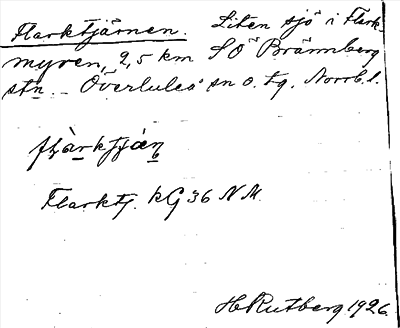 Flarktjärnen. Liten sjö i Flark-
myren, 2,5 km SO Brännberg
stn. Överluleå sn o. tg. Norrb. l.
flàrktján
Flarktj. kG 36 N M.
H Rutberg 1926.